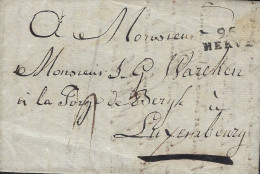 A Monsieur
96
HERVE
Monsieur J. G. Warcken
à la Forge de Berg à
Luxembourg